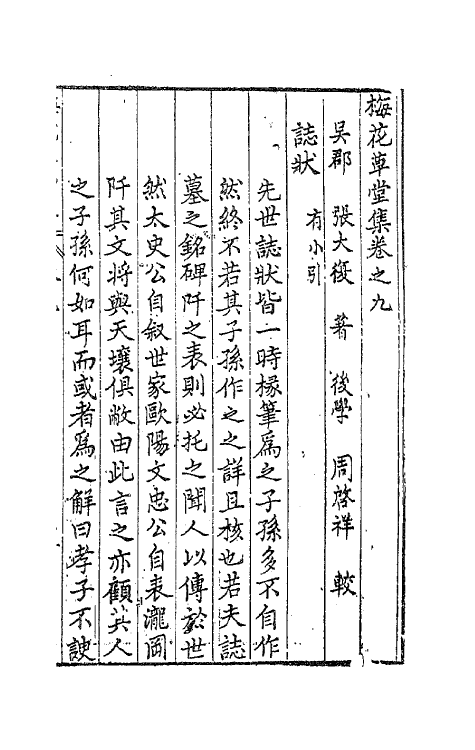 梅花草堂集卷之九
吳郡 張大復 著 後學 周啓祥 較
誌狀 有小引
先世誌狀皆一時椽筆爲之子孫多不自作
然終不若其子孫作之之詳且核也若夫誌
墓之銘碑阡之表則必托之聞人以傳於世
然太史公自敘世家歐陽文忠公自表瀧岡
阡其文將與天壤俱敝由此言之亦顧其人
之子孫何如耳而或者爲之解曰孝子不諛